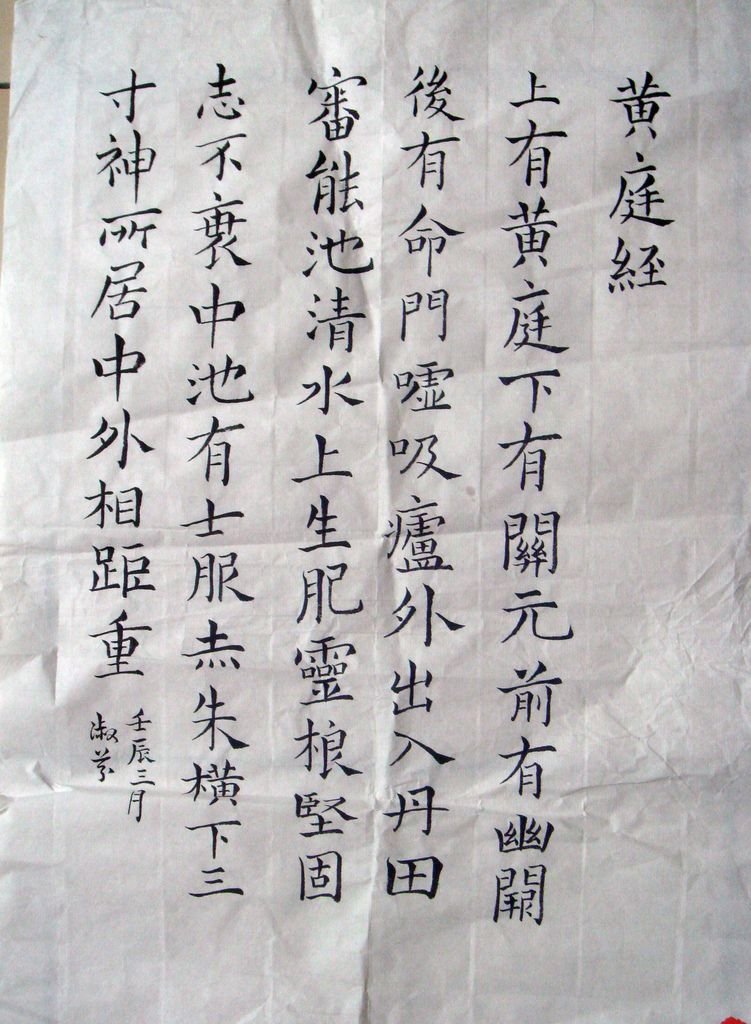 黄庭経
上有黄庭下有關元前有幽闕
後有命門嘘吸廬外出入丹田
審能池清水上生肥靈根堅固
志不衰中池有士服赤朱横下三
寸神所居中外相距重
壬辰三月
淑芬